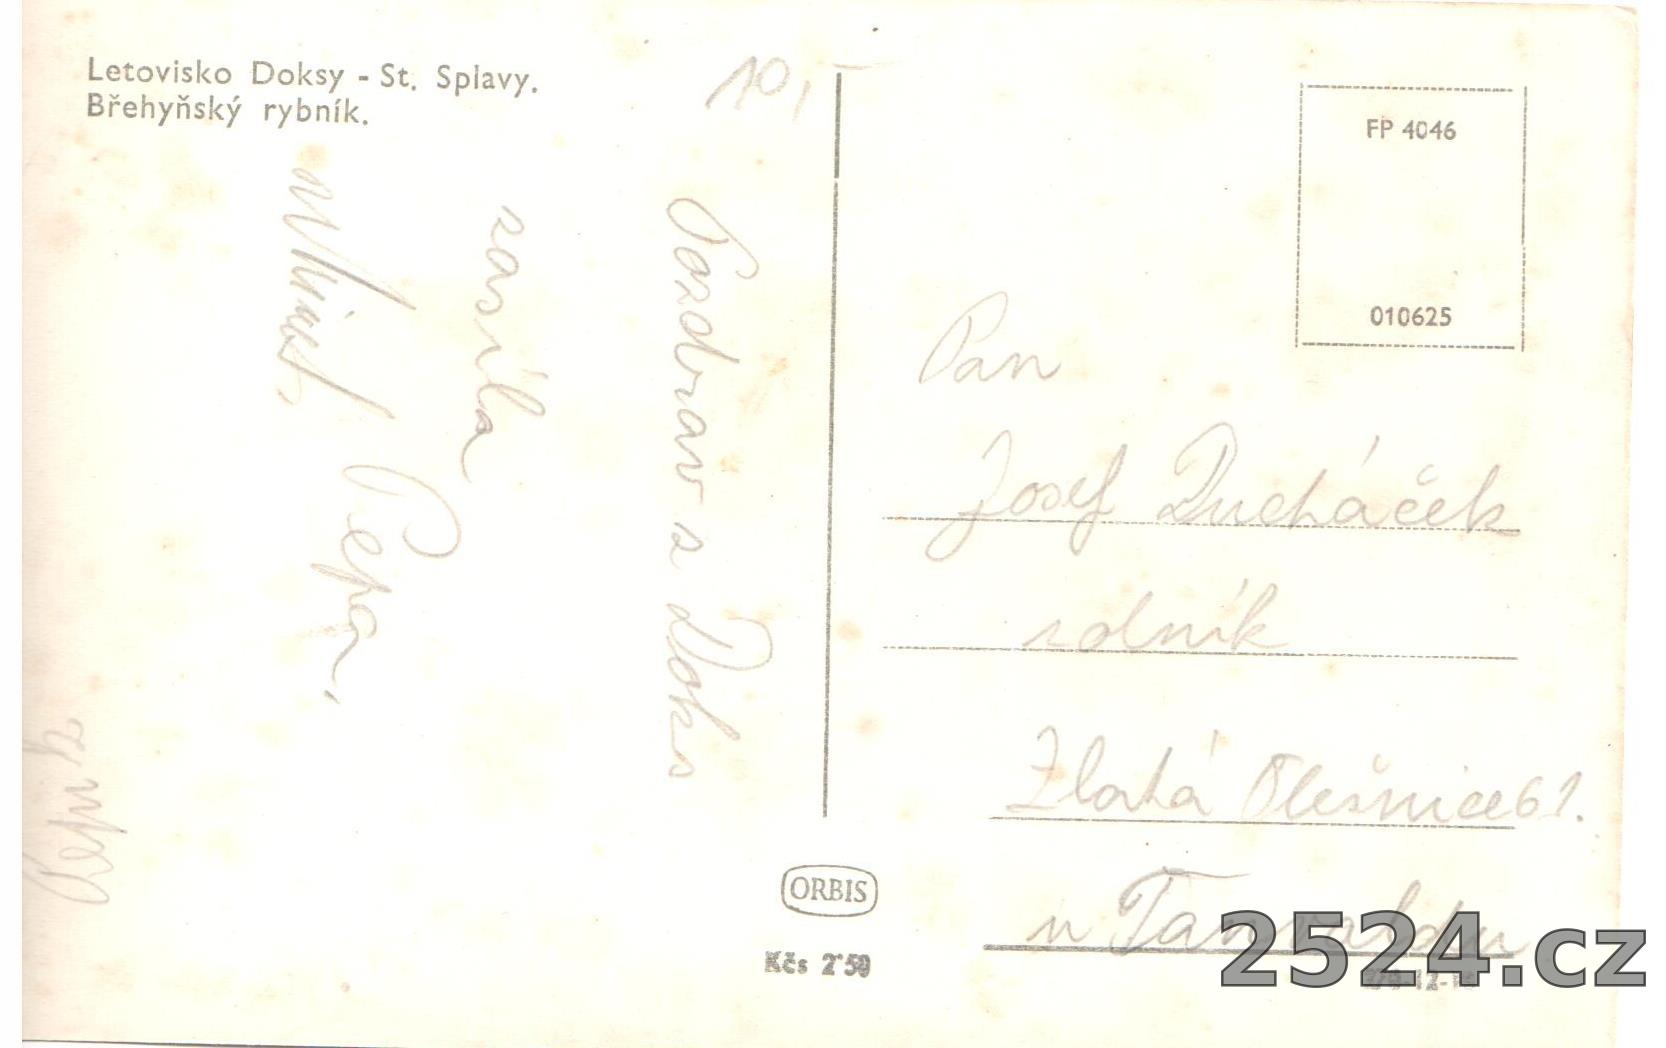 Letovisko Doksy - St. Splavy.
Břehyňský rybník.
10,-
Pozdrav z Doks
zasílá
Pepa,
FP 4046
010625
Pan
Josef Ducháček
rolník
Zlatá Olešnice 61.
u Tanvaldu
ORBIS
Kčs 2·50
2524.cz